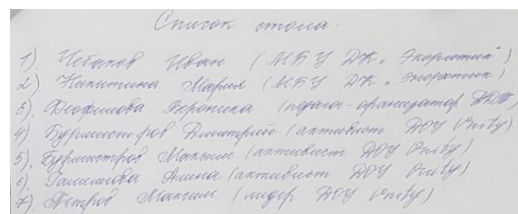 Список стола.
1). Чебаков Иван (МБУ ДК „Энергетик")
2). Никитина Мария (МБУ ДК „Энергетик")
3). Феофилова Вероника (педагог-организатор ДДТ)
4) Бурмистров Дмитрий (активист ДОУ Unity)
5). Бурмистров Максим (активист ДОУ Unity)
6). Алина (активист ДОУ Unity)
7). Петров Максим (лидер ДОУ Unity)